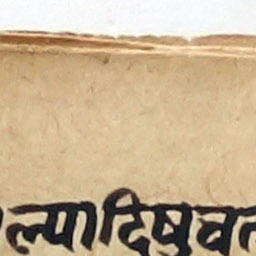 ल्पादिषुवत